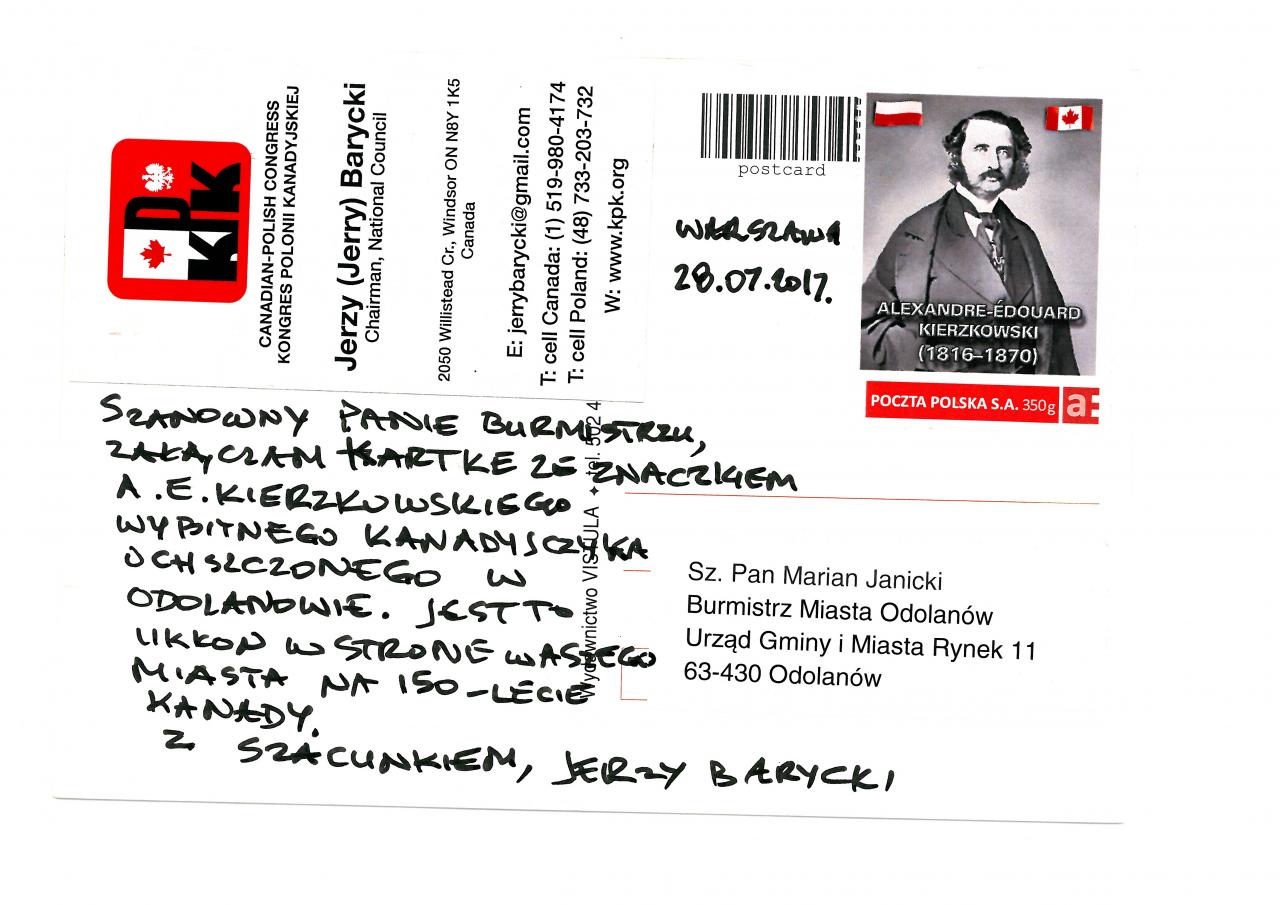 PKK
CANADIAN-POLISH CONGRESS
KONGRES POLONII KANADYJSKIEJ
Jerzy (Jerry) Barycki
Chairman, National Council
2050 Willistead Cr., Windsor ON N8Y 1K5
Canada
E: jerrybarycki@gmail.com
T: cell Canada: (1) 519-980-4174
T: cell Poland: (48) 733-203-732
W: www.kpk.org
postcard
WARSZAWA
28.07.2017.
ALEXANDRE-ÉDOUARD
KIERZKOWSKI
(1816–1870)
POCZTA POLSKA S.A. 350g aE
SZANOWNY PANIE BURMISTRZU,
ZAŁĄCZAM KARTKE ZE ZNACZKIEM
A.E. KIERZKOWSKIEGO
WYBITNEGO KANADYJSCZYKA
OCHSZCZONEGO W
ODOLANOWIE. JEST TO
UKKON W STRONE WASZEGO
MIASTA NA 150-LECIE
KANADY.
Z SZACUNKIEM, JERZY BARYCKI
Wydawnictwo VISTULA ✦ tel. 502 4
Sz. Pan Marian Janicki
Burmistrz Miasta Odolanów
Urząd Gminy i Miasta Rynek 11
63-430 Odolanów